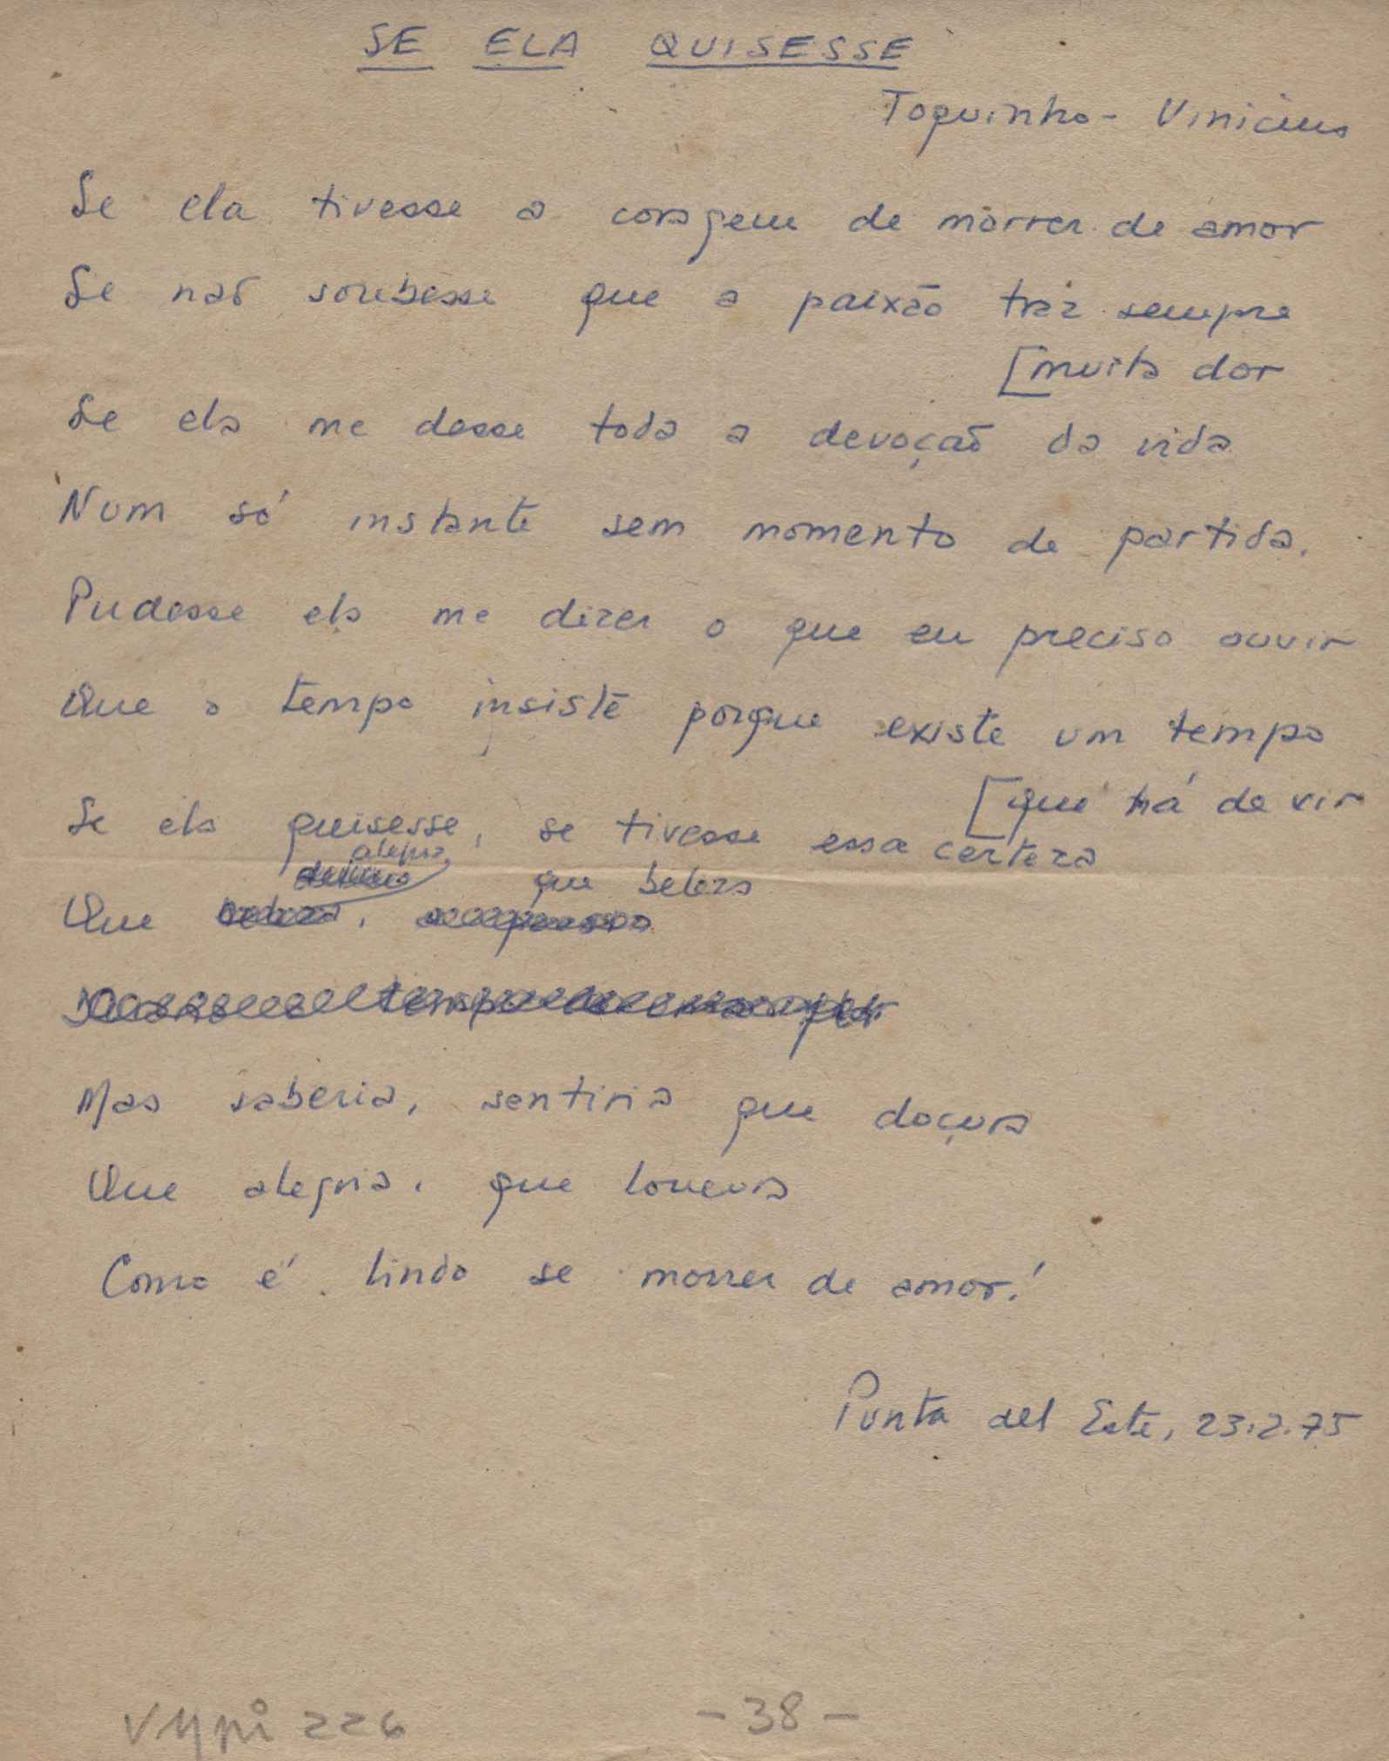 SE ELA QUISESSE
Toquinho - Vinicius
Se ela tivesse a coragem de morrer de amor
Se não soubesse que a paixão traz sempre
[muita dor
Se ela me desse toda a devoção da vida
Num só instante sem momento de partida.
Pudesse ela me dizer o que eu preciso ouvir
Que o tempo insiste porque existe um tempo
[que há de vir
Se ela quisesse, se tivesse essa certeza
alegria,
que beleza
Que
Mas saberia, sentiria que doçura
Que alegria, que loucura
Como é lindo se morrer de amor!
Punta del Este, 23.2.75
VMpi 226
- 38 -